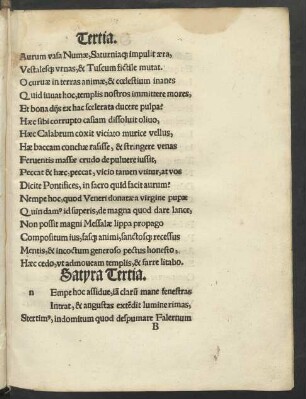 Tertia.
Aurum vasa Numæ, Saturniaq; impulit æra,
Vestalesq; vrnas, & Tuscum fictile mutat.
O curuæ in terras animæ, & cœlestium inanes
Quid iuuat hoc, templis nostros immittere mores,
Et bona dijs ex hac scelerata ducere pulpa?
Hæc sibi corrupto casiam dissoluit oliuo,
Hæc Calabrum coxit viciato murice vellus,
Hæc baccam conchæ rasisse, & stringere venas
Feruentis massæ crudo de puluere iussit,
Peccat & hæc, peccat, vicio tamen vtitur, at vos
Dicite Pontifices, in sacro quid facit aurum?
Nempe hoc, quod Veneri donatæ a virgine pupæ
Quin damꝰ id superis, de magna quod dare lance,
Non possit magni Messalæ lippa propago
Compositum ius, fasq; animi, sanctosq; recessus
Mentis, & incoctum generoso pectus honesto,
Hæc cedo, vt admoueam templis, & farre litabo.
Satyra Tertia.
n Empe hoc assidue, iã clarũ mane fenestras
Intrat, & angustas extẽdit lumine rimas,
Stertimꝰ, indomitum quod despumare Falernum
B